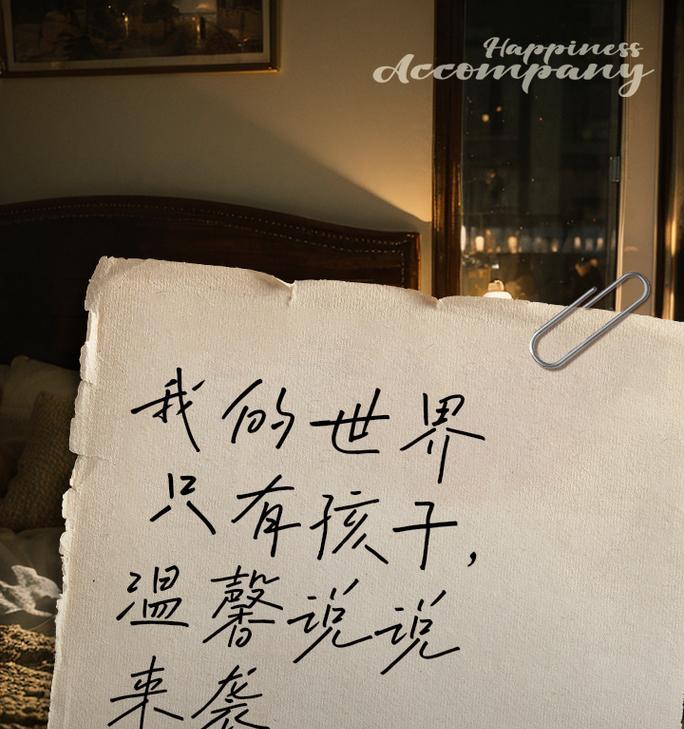 Happiness
Accompany
我的世界
只有孩子,
温馨说说
来袭